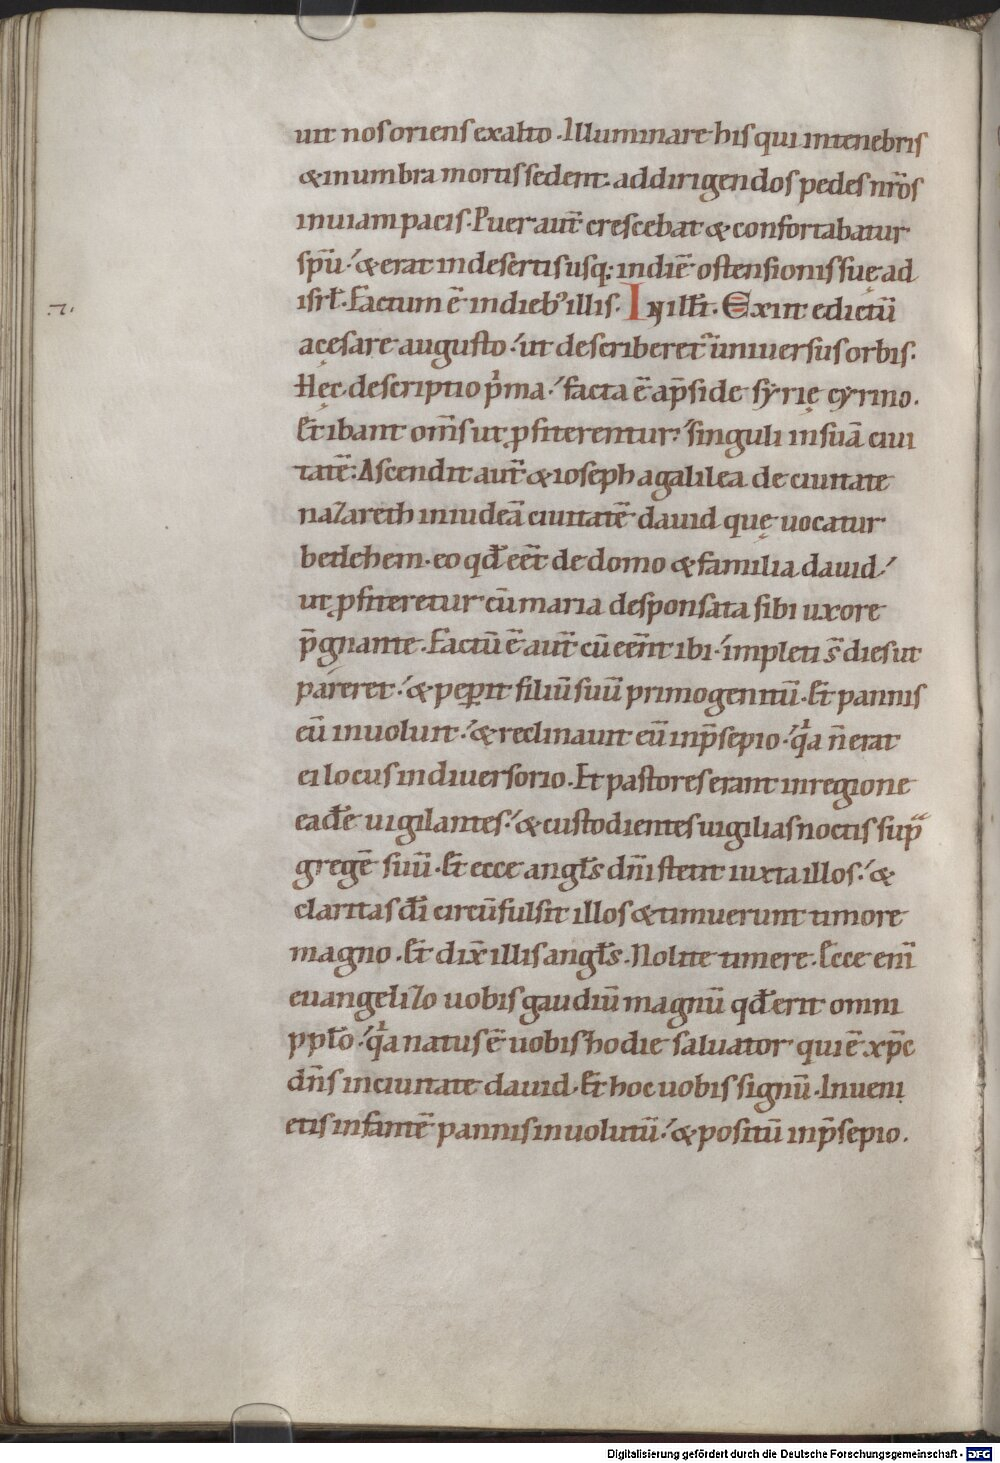 uit nos oriens exalto. Illuminare his qui intenebris
& inumbra mortis sedent. addirigendos pedes nr̄os
inuiam pacis. Puer aut̄ crescebat & confortabatur
sp̄u. & erat indesertis usq; indiē ostensionis suę ad
isrł. Factum ē indieb' illis. In ill̄t. Exiit edictū
acęsare augusto. ut describeret̄ uniuersus orbis.
Hęc descriptio p̍ma. facta ē ap̄side syrię cyrino.
Et ibant om̄s ut ꝓfiterentur. singuli insuā ciui
tatē. Ascendit aut̄ & ioseph agalilea de ciuitate
nazareth iniudeā ciuitatē dauid quę uocatur
betlehem. eo qđ eēt de domo & familia dauid.
ut ꝓfiteretur cū maria desponsata sibi uxore
p̄gnante. Factū ē aut̄ cū eēnt ibi. impleti s̄ dies ut
pareret. & peꝑit filiū suū primogenitū. Et pannis
eū inuoluit. & reclinauit eū inp̄sepio. q̍a n̄ erat
ei locus indiuersorio. Et pastores erant inregione
eadē uigilantes. & custodientes uigilias noctis sup̄
gregē suū. Et ecce angłs dn̄i stetit iuxta illos. &
claritas dī circūfulsit illos & timuerunt timore
magno. Et dix̄ illis angłs. Nolite timere. Ecce enī
euangelizo uobis gaudiū magnū qđ erit omni
ppło. q̍a natus ē uobis hodie saluator qui ē xp̄c
dn̄s inciuitate dauid. Et hoc uobis signū. Inueni
etis infantē pannis inuolutū. & positū inp̄sepio.
Digitalisierung gefördert durch die Deutsche Forschungsgemeinschaft - DFG